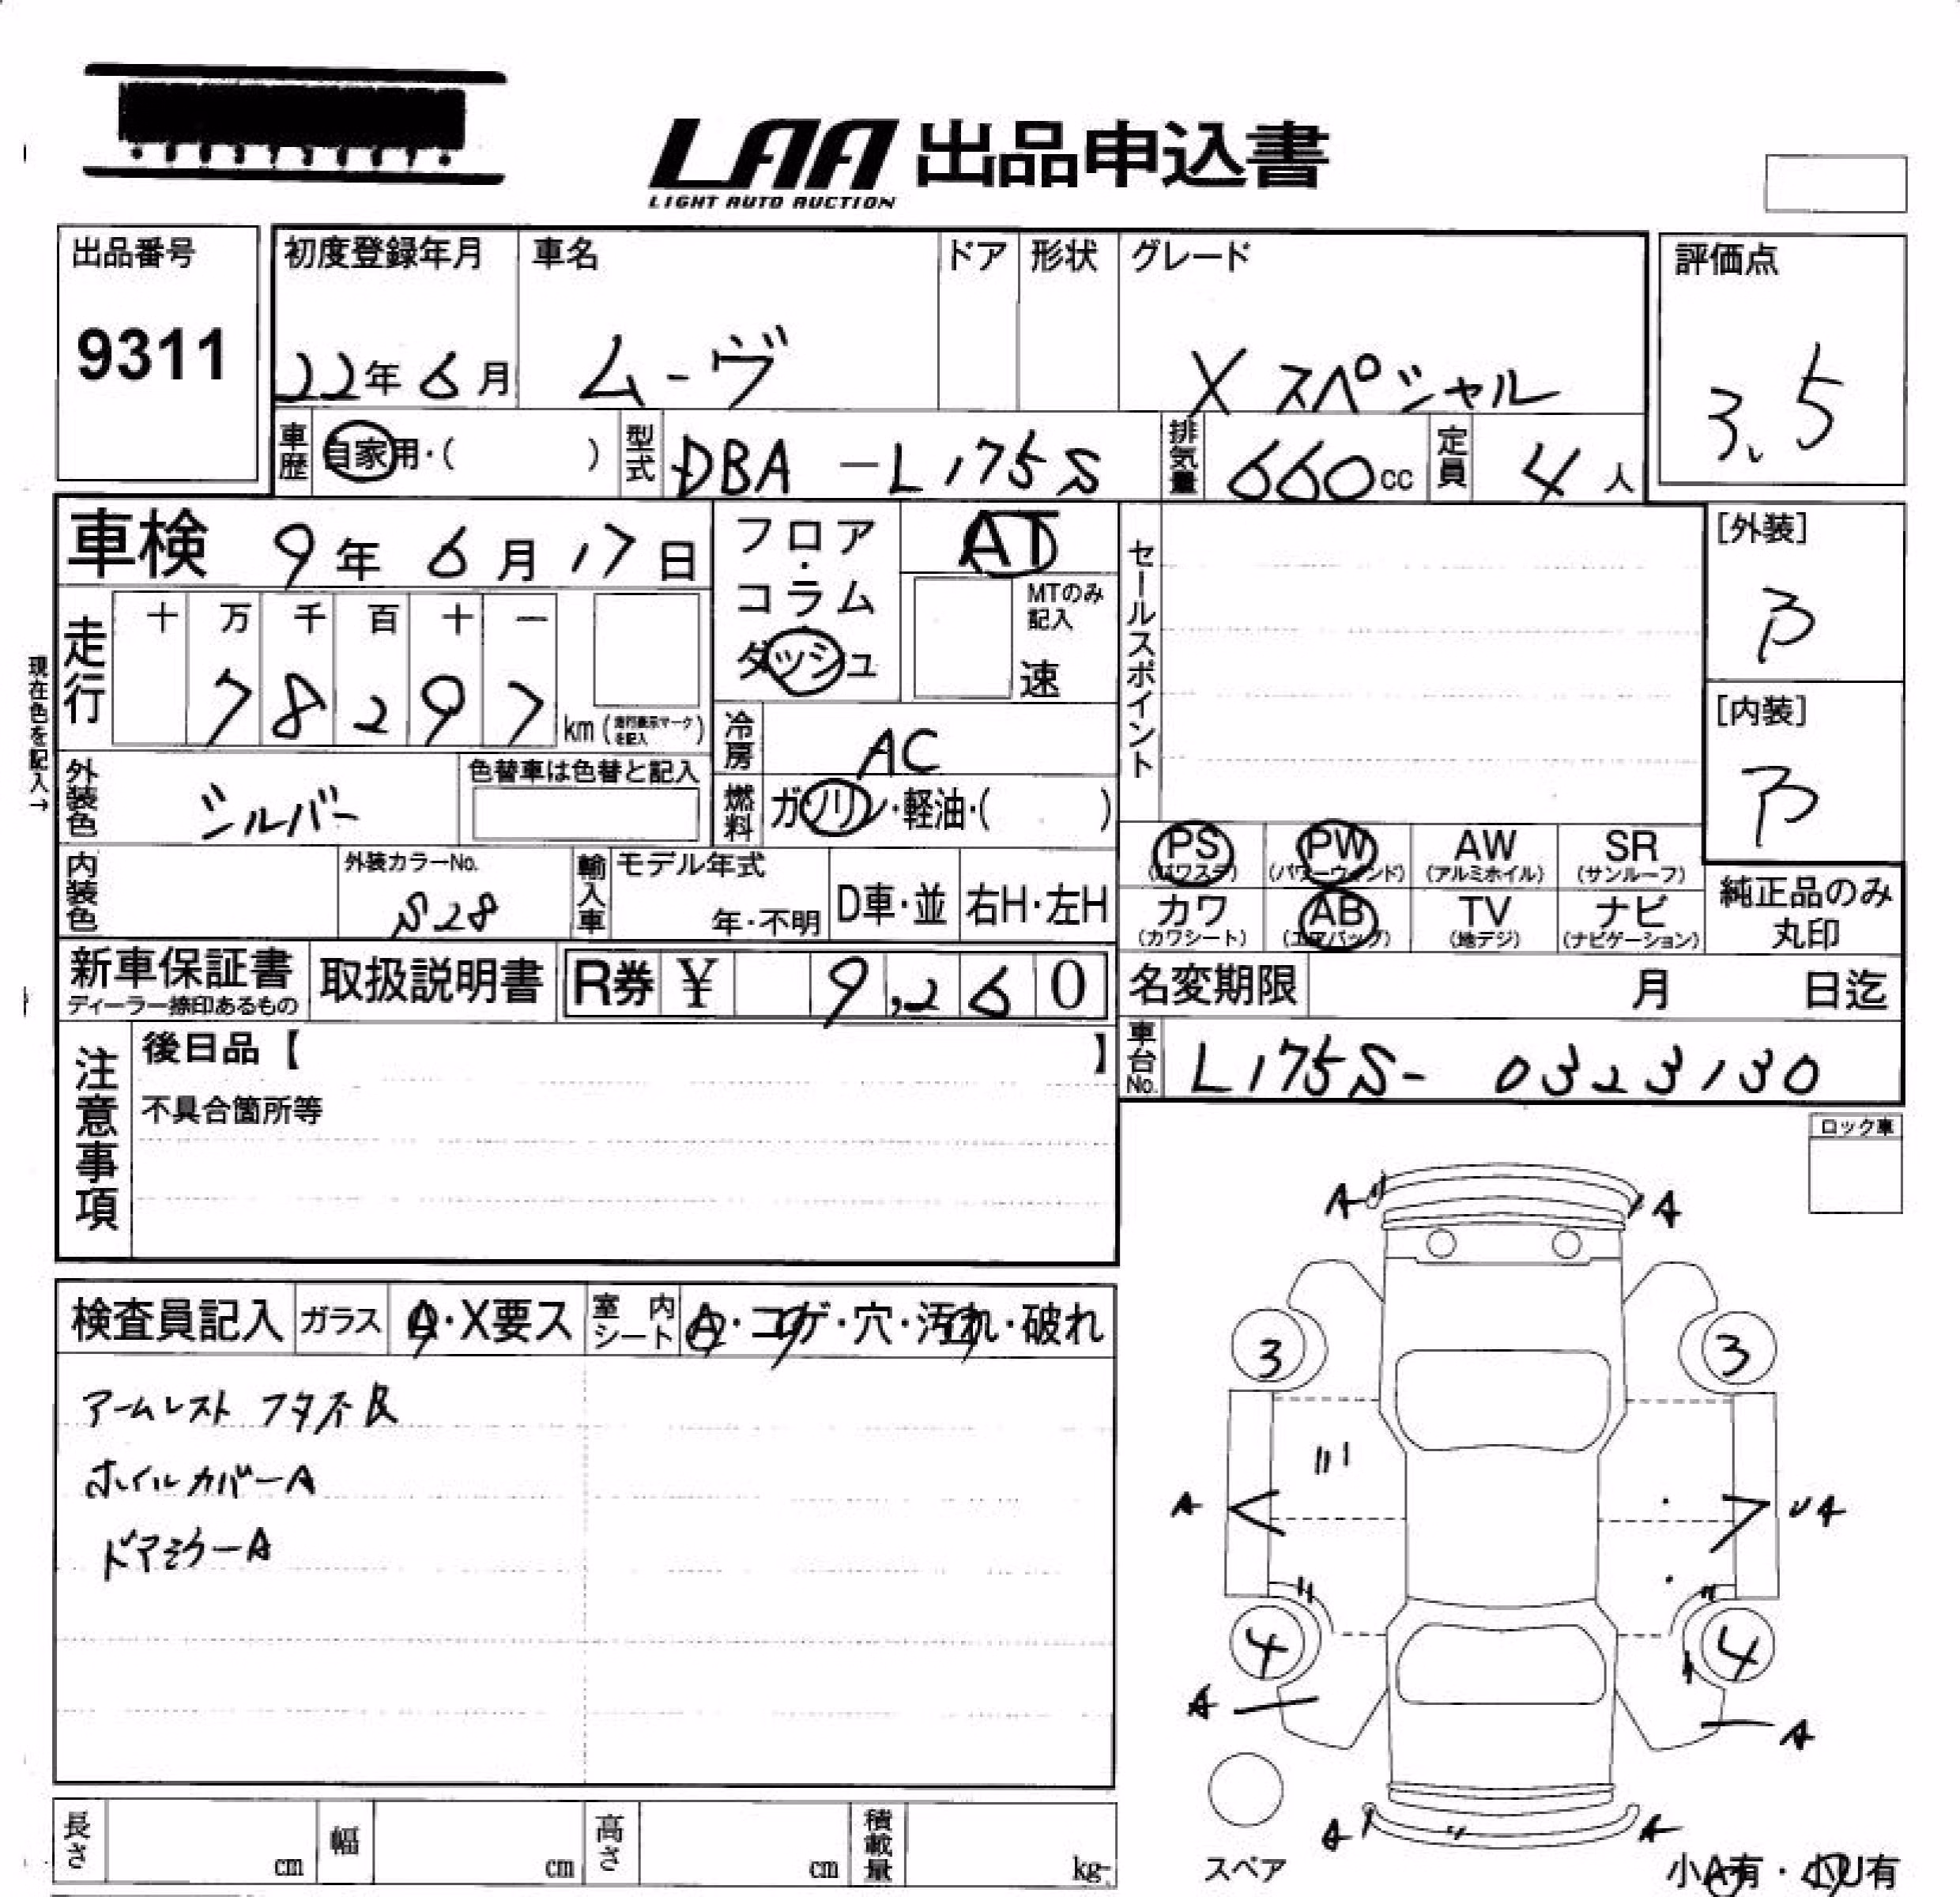 LAA 出品申込書
LIGHT AUTO AUCTION
出品番号 初度登録年月 車名 ドア 形状 グレード 評価点
9311 22年 6月 ムーヴ X スペシャル 3.5
車歴 自家用・( ) 型式 DBA-L175S 排気量 660cc 定員 4人
車検 9年 6月 17日 フロア・コラム・ダッシュ AT セールスポイント [外装]
B
MTのみ記入 速
走行 十 万 千 百 十 一
78297 km (走行表示マークを記入)
[内装]
B
現在色を記入→
冷房 AC
外装色 シルバー 色替車は色替と記入 燃料 ガソリン・軽油・( )
PS (パワステ) PW (パワーウィンド) AW (アルミホイル) SR (サンルーフ)
内装色 外装カラーNo. S28 輸入車 モデル年式 年・不明 D車・並 右H・左H
カワ (カワシート) AB (エアバッグ) TV (地デジ) ナビ (ナビゲーション) 純正品のみ丸印
新車保証書 ディーラー捺印あるもの 取扱説明書 R券 ¥ 9,260 名変期限 月 日迄
注意事項 後日品【 】 車台No. L175S-0323130
不具合箇所等
ロック車
A A
検査員記入 ガラス A・X要ス 室内シート A・コゲ・穴・汚れ・破れ
3 3
アームレスト フタ不良
ホイルカバーA
A U4
ドアミラーA
4 4
A A
A A
長さ cm 幅 cm 高さ cm 積載量 kg
スペア 小A有・小U有